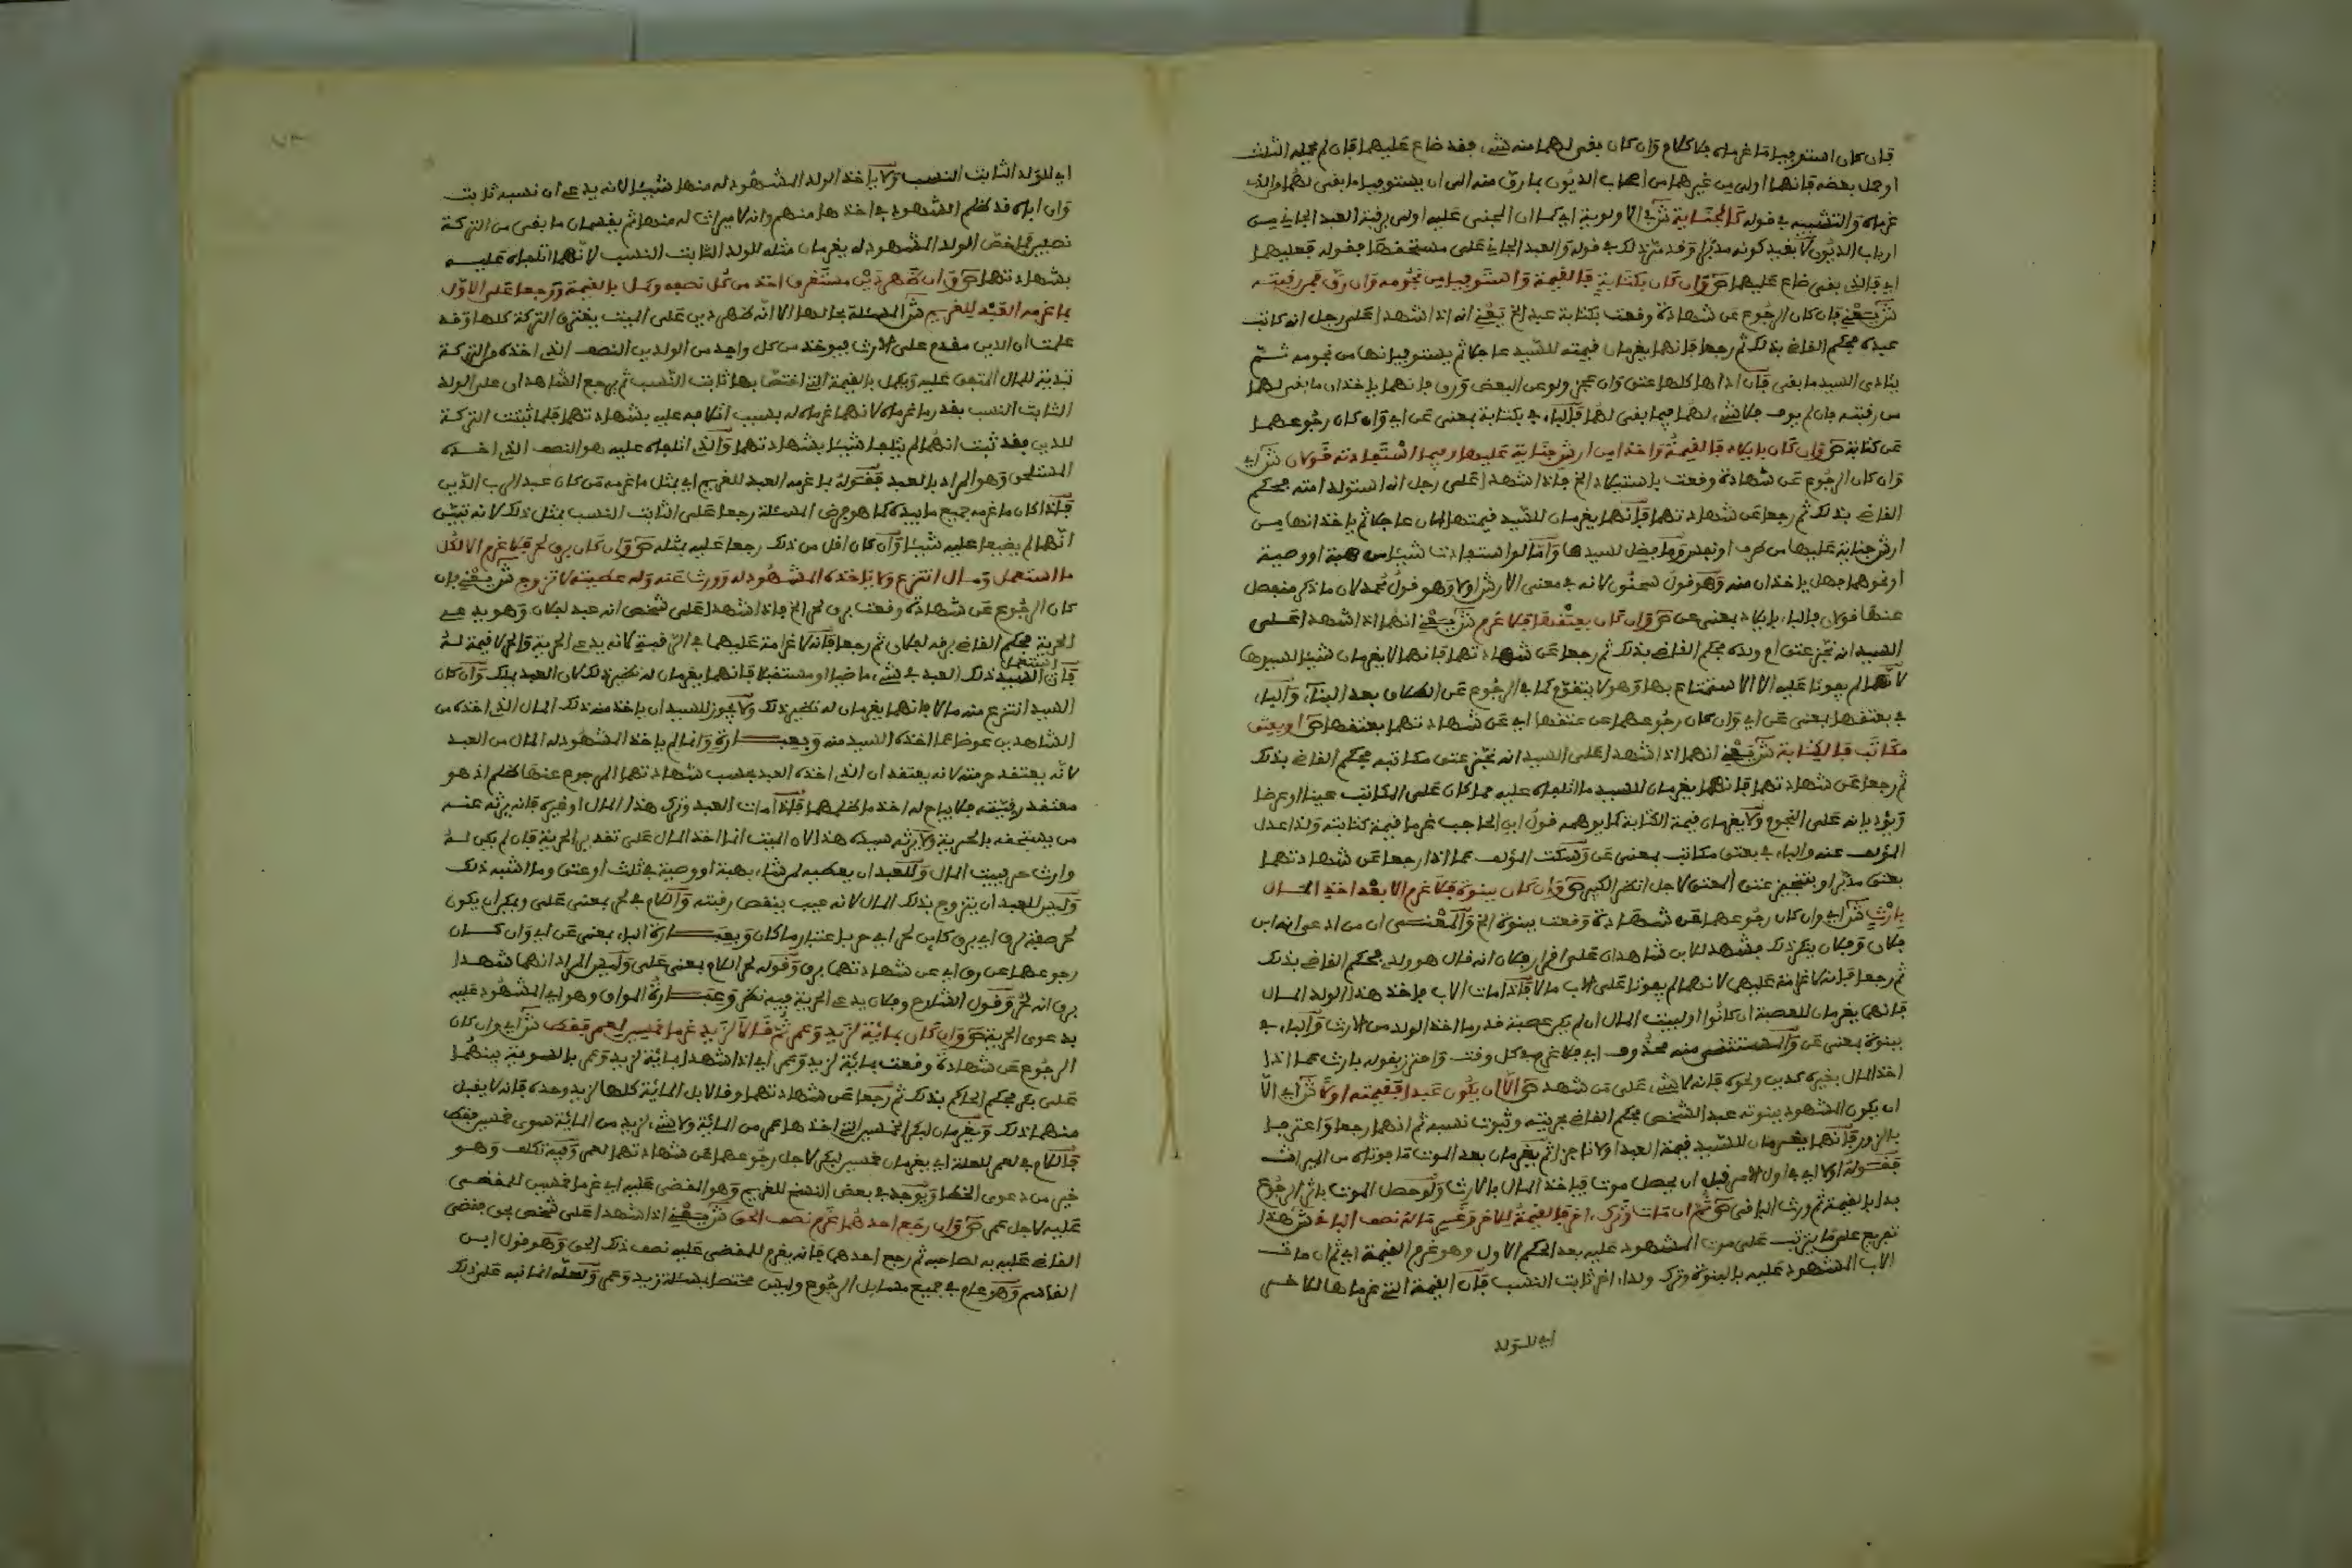 فإن كان استوفيا ما غرماه فلا كلام وإن كان بقي لهما منه شيء فقد ضاع عليهما فإن لم يحمله الثلث
أو حمل بعضه فإنهما أولى من غيرهما من أصحاب الديون بما رق منه إلى أن يستوفيا ما بقي لهما والذي
غرماه والتشبيه في قوله كالجناية ش في الأولوية أي كما أن المجني عليه أولى برقبة العبد الجاني من
أرباب الديون لا بقيد كونه مدبرا وقد مر ذلك في قوله والعبد الجاني على مستحقها فقوله فعليهما
أي فالذي بقي ضاع عليهما ص وإن كان بكتابة فالقيمة واستوفيا من نجومه وإن رق فمن رقبته
ش يعني فإن كان الرجوع عن شهادة وقعت بكتابة عبد الخ يعني أنه إذا شهدا على رجل أنه كاتب
عبده فحكم القاضي بذلك ثم رجعا فإنهما يغرمان قيمته للسيد عاجلا ثم يستوفيانها من نجومه ثم
يتأدى السيد ما بقي فإن أداها كلها عتق وإن عجز ولو عن البعض ورق فإنهما يأخذان ما بقي لهما
من رقبته فإن لم يوف فلا شيء لهما فيما بقي لهما فالباء في بكتابة بمعنى عن أي وإن كان رجوعهما
عن كتابة ص وإن كان بإيلاد فالقيمة وأخذا من أرش جناية عليها وفيما استفادته قولان ش أي
وإن كان الرجوع عن شهادة وقعت باستيلاد الخ فإذا شهدا على رجل أنه استولد أمته فحكم
القاضي بذلك ثم رجعا عن شهادتهما فإنهما يغرمان للسيد قيمتها الآن عاجلا ثم يأخذانها من
أرش جناية عليها من طرف أو نحوه وما يفضل لسيدها وأما لو استفادت شيئا من هبة أو وصية
أو نحوهما فهل يأخذان منه وهو قول سحنون لأنه في معنى الأرش أولا وهو قول محمد لأن ما ذكر منفصل
عنها قولان فالباء بإيلاد بمعنى عن ص وإن كان بعتقها فلا غرم ش يعني أنهما إذا شهدا على
السيد أنه نجز عتق أم ولده فحكم القاضي بذلك ثم رجعا عن شهادتهما فإنهما لا يغرمان شيئا لسيدها
لأنهما لم يفوتا عليه إلا الاستمتاع بها وهو لا يتقوم كما في الرجوع عن الطلاق بعد البناء والباء
في بعتقها بمعنى عن أي وإن كان رجوعهما عن عتقها أي عن شهادتهما بعتقها ص أو بعتق
مكاتب فالكتابة ش يعني أنهما إذا شهدا على السيد أنه نجز عتق مكاتبه فحكم القاضي بذلك
ثم رجعا عن شهادتهما فإنهما يغرمان للسيد ما أتلفاه عليه مما كان على المكاتب عينا أو عرضا
ويؤديانه على النجوم ولا يغرمان قيمة الكتابة كما يوهمه قول ابن الحاجب غرما قيمة كتابته ولذا عدل
المؤلف عنه والباء في بعتق مكاتب بمعنى عن وسكت المؤلف عما إذا رجعا عن شهادتهما
بعتق مدبر أو بتنجيز عتق المعتق لأجل انظر الكبير ص وإن كان ببنوة فلا غرم إلا بعد أخذ المال
بإرث ش أي وإن كان رجوعهما عن شهادة وقعت ببنوة الخ والمعنى أن من ادعى أنه ابن
فلان وفلان ينكر ذلك فشهد للابن شاهدان على إقرار فلان أنه قال هو ولدي فحكم القاضي بذلك
ثم رجعا فإنه لا غرامة عليهما لأنهما لم يفوتا على الأب مالا فإذا مات الأب فأخذ هذا الولد المال
فإنهما يغرمان للعصبة إن كانوا أو لبيت المال إن لم يكن عصبة قدر ما أخذ الولد من الإرث والباء في
ببنوة بمعنى عن والمستثنى منه محذوف أي فلا غرم في كل وقت واحترز بقوله بإرث عما إذا
أخذ المال بغيره كدين ونحوه فإنه لا شيء على من شهد ص إلا أن يكون عبدا فقيمته أولا ش أي إلا
أن يكون المشهود ببنوته عبدا لشخص فحكم القاضي بحريته وثبوت نسبه ثم إنهما رجعا واعترفا
بالزور فإنهما يغرمان للسيد قيمة العبد أولا ناجزا ثم يغرمان بعد الموت ما فوتاه من الميراث
فقوله أولا أي في أول الأمر قبل أن يحصل موت فيأخذ المال بالإرث ولو حصل الموت بإثر الرجوع
بدأ بالقيمة ثم ورث الباقي ص ثم إن مات وترك آخر فالقيمة للآخر وغرما له نصف الباقي ش هذا
تفريع على ما يترتب على موت المشهود عليه بعد الحكم الأول وهو غرم القيمة أي ثم إن مات
الأب المشهود عليه بالبنوة وترك ولدا آخر ثابت النسب فإن القيمة التي غرماها للآخر
أي للولد
أي للولد الثابت النسب ولا يأخذ الولد المشهود له منها شيئا لأنه يدعي أن نسبه ثابت
وأن أباه قد ظلم الشهود في أخذها منهم وأنه لا ميراث له منها ثم يقسمان ما بقي من التركة
نصفين فما خص الولد المشهود له يغرمان مثله للولد الثابت النسب لأنهما أتلفاه عليه
بشهادتهما ص وإن ظهر دين مستغرق أخذ من كل نصفه وكمل بالقيمة ورجعا على الأول
بما غرمه العبد للغريم ش المسئلة بحالها إلا أنه ظهر دين على الميت يغترق التركة كلها وقد
علمت أن الدين مقدم على الإرث فيؤخذ من كل واحد من الولدين النصف الذي أخذه من التركة
تبدية للمال المتفق عليه ويكمل بالقيمة التي اختص بها ثابت النسب ثم يرجع الشاهدان على الولد
الثابت النسب بقدر ما غرماه لأنهما غرماه له بسبب إتلافه عليه بشهادتهما فلما ثبتت التركة
للدين فقد ثبت أنهما لم يتلفا شيئا بشهادتهما والذي أتلفاه عليه هو النصف الذي أخذه
المستلحق وهو المراد بالعبد فقوله بما غرمه العبد للغريم أي بمثل ما غرمه من كان عبدا لرب الدين
فإذا كان ما غرمه جميع ما بيده كما هو فرض المسئلة رجعا على الثابت النسب بمثل ذلك لأنه تبين
أنهما لم يضيعا عليه شيئا وإن كان أقل من ذلك رجعا عليه بمثله ص وإن كان برق لحر فلا غرم إلا لكل
ما استعمل ومال انتزع ولا يأخذه المشهود له وورث عنه وله عطيته لا تزوج ش يعني فإن
كان الرجوع عن شهادة وقعت برق لحر الخ فإذا شهدا على شخص أنه عبد لفلان وهو يدعي
الحرية فحكم القاضي برقه لفلان ثم رجعا فإنه لا غرامة عليهما في الرقبة لأنه يدعي الحرية والحر لا قيمة له
فإن استعمل السيد ذلك العبد في شيء ماضيا أو مستقبلا فإنهما يغرمان له نظير ذلك لأن العبد يملك وإن كان
السيد انتزع منه مالا فإنهما يغرمان له نظير ذلك ولا يجوز للسيد أن يأخذ منه ذلك المال الذي أخذه من
الشاهدين عوضا عما أخذه السيد منه وبعبارة وإنما لم يأخذ المشهود له المال من العبد
لأنه يعتقد حرمته لأنه يعتقد أن الذي أخذه العبد بسبب شهادتهما المرجوع عنها ظلم إذ هو
معتقد رقيته فلا يباح له أخذ ما ظلمهما فإذا مات العبد وترك هذا المال أو غيره فإنه يرثه عنه
من يستحقه بالحرية ولا يرثه سيده هذا لأن الميت إنما أخذ المال على تقدير الحرية فإن لم يكن له
وارث حر فبيت المال وللعبد أن يعطيه لمن شاء بهبة أو وصية في ثلث أو عتق وما أشبه ذلك
وليس للعبد أن يتزوج بذلك المال لأنه عيب ينقص رقبته واللام في لحر بمعنى على ويمكن أن يكون
لحر صفة لرق أي برق كائن لحر أي حر باعتبار ما كان وبعبارة الباء بمعنى عن أي وإن كان
رجوعهما عن رق أي عن شهادتهما برق وقوله لحر اللام بمعنى على وليس المراد أنهما شهدا
برق أنه لحر وقول الشارح وفلان يدعي الحرية فيه نظر وعبارة المواق وهو أي المشهود عليه
يدعوى الحرية ص وإن كان بمائة لزيد وعمرو ثم قالا لزيد غرما خمسين لعمرو فقط ش أي وإن كان
الرجوع عن شهادة وقعت بمائة لزيد وعمرو أي إذا شهدا بمائة لزيد وعمرو بالسوية بينهما
على بكر فحكم الحاكم بذلك ثم رجعا عن شهادتهما وقالا بل المائة كلها لزيد وحده فإنه لا يقبل
منهما ذلك ويغرمان لبكر الخمسين التي أخذها عمرو من المائة ولا شيء لزيد من المائة سوى خمسين فقط
فاللام في لعمرو للعلة أي يغرمان خمسين لبكر لأجل رجوعهما عن شهادتهما لعمرو وفيه تكلف وهو
خير من دعوى الخطإ ويوجد في بعض النسخ للغريم وهو المقضي عليه أي غرما خمسين للمقضي
عليه لأجل عمرو ص وإن رجع أحدهما غرم نصف الحق ش يعني إذا شهدا على شخص بحق فقضى
القاضي عليه به لصاحبه ثم رجع أحدهما فإنه يغرم للمقضي عليه نصف ذلك الحق وهو قول ابن
القاسم وهو عام في جميع مسائل الرجوع وليس مختصا بمسئلة زيد وعمرو ولعله إنما نبه على ذلك